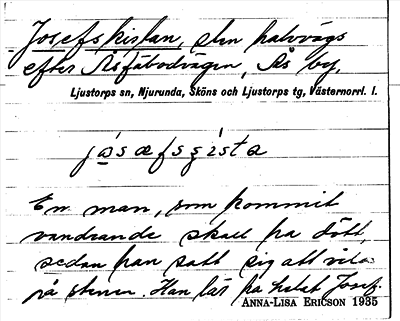 Josefskistan, sten halvvägs
efter Åsfäbodvägen, Ås by.
Ljustorps sn, Njurunda, Sköns och Ljustorps tg, Västernorrl. l.
jåsæfsɕista
En man, som kommit
vandrande skall ha dött
sedan han satt sig att vila
på stenen. Han lär ha hetat Josef.
ANNA-LISA ERICSON 1935